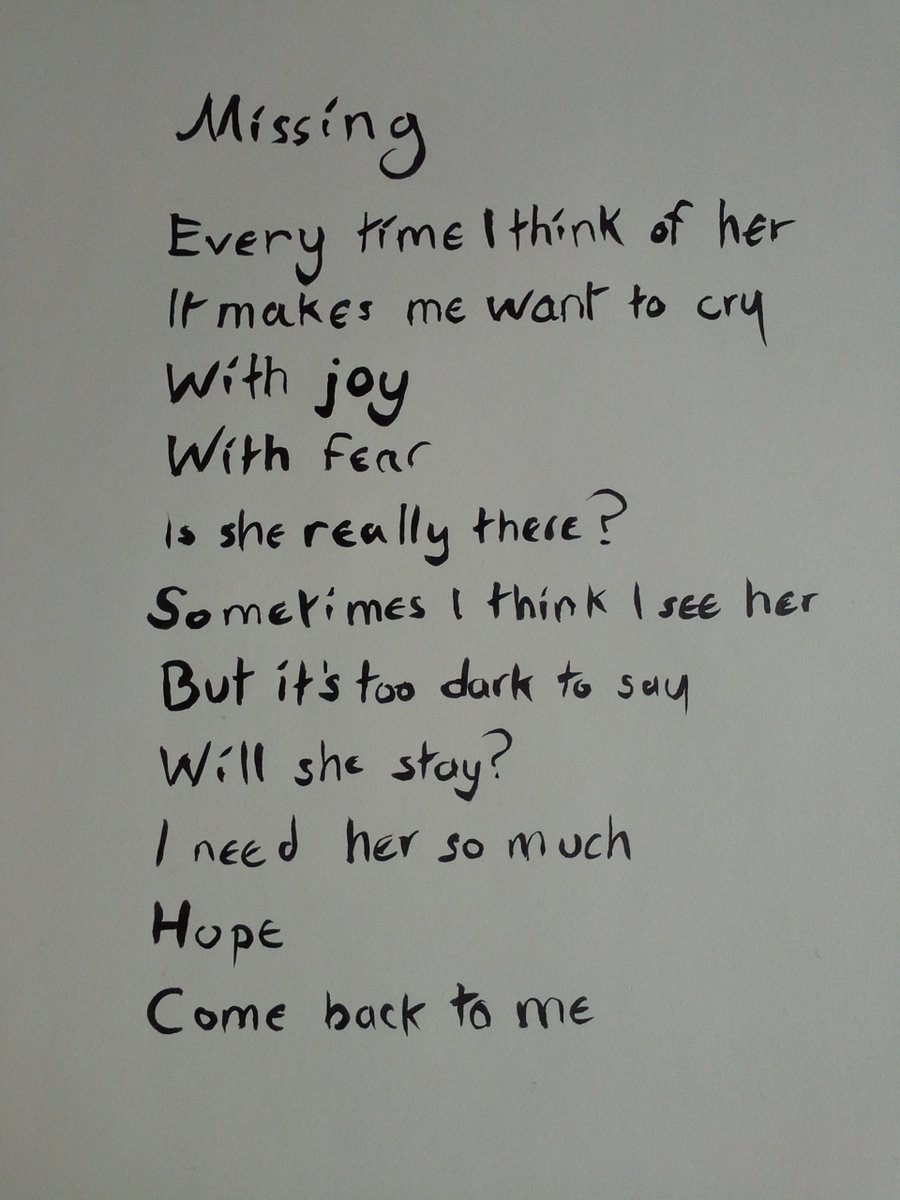 Missing
Every time I think of her
It makes me want to cry
With joy
With fear
Is she really there?
Sometimes I think I see her
But it's too dark to say
Will she stay?
I need her so much
Hope
Come back to me